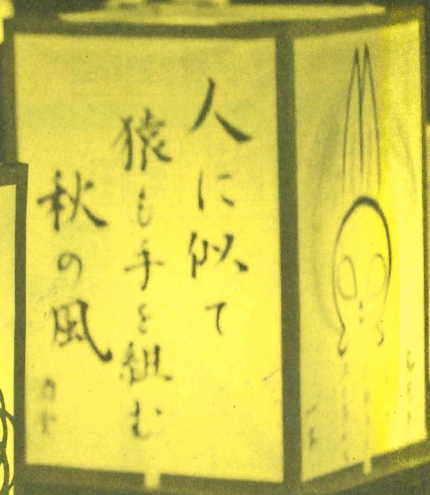 人に似て
猿も手を組む
秋の風